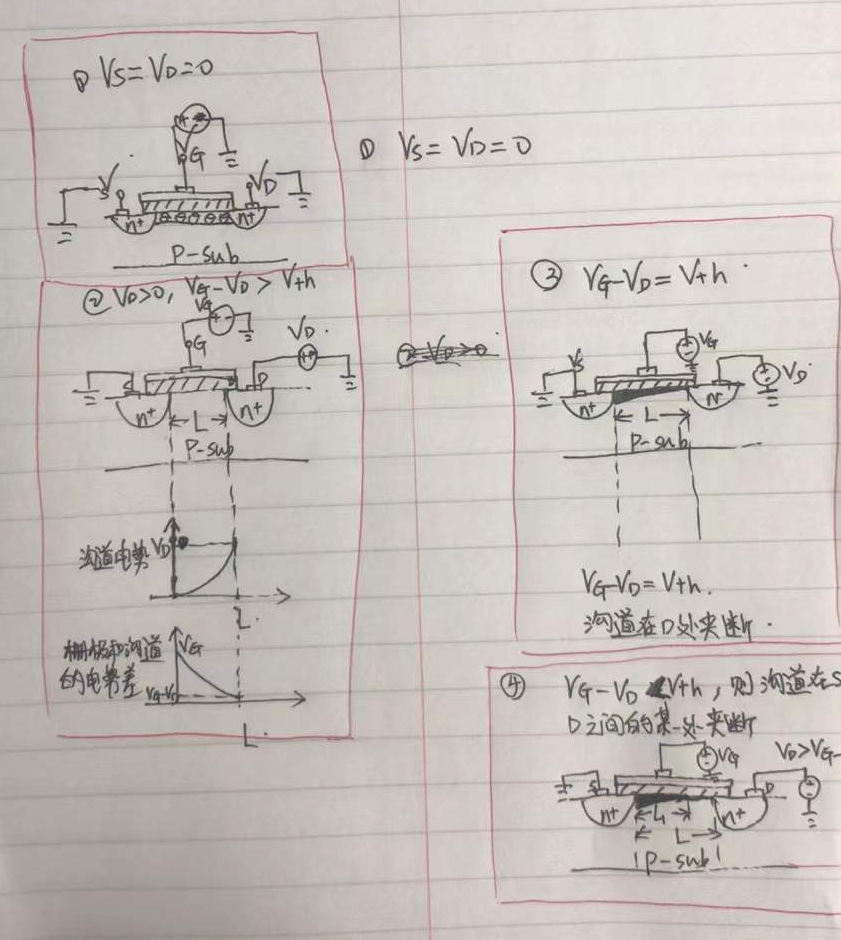 ① VS=VD=0
G
VD
n+ n+
P-sub
① VS=VD=0
② VD>0, VG-VD>V+h
VG
VD.
G
S D
n+ L n+
P-sub
沟道电势 VD
L.
栅极和沟道 VG
的电势差 VG-VD
L.
② VD>0
③ VG-VD=V+h.
VS VG VD
n+ L n+
P-sub
VG-VD=V+h.
沟道在D处夹断.
④ VG-VD<V+h, 则沟道在S
D之间的某一处夹断
VG VD>VG-
S D
n+ L1 n+
L
P-sub